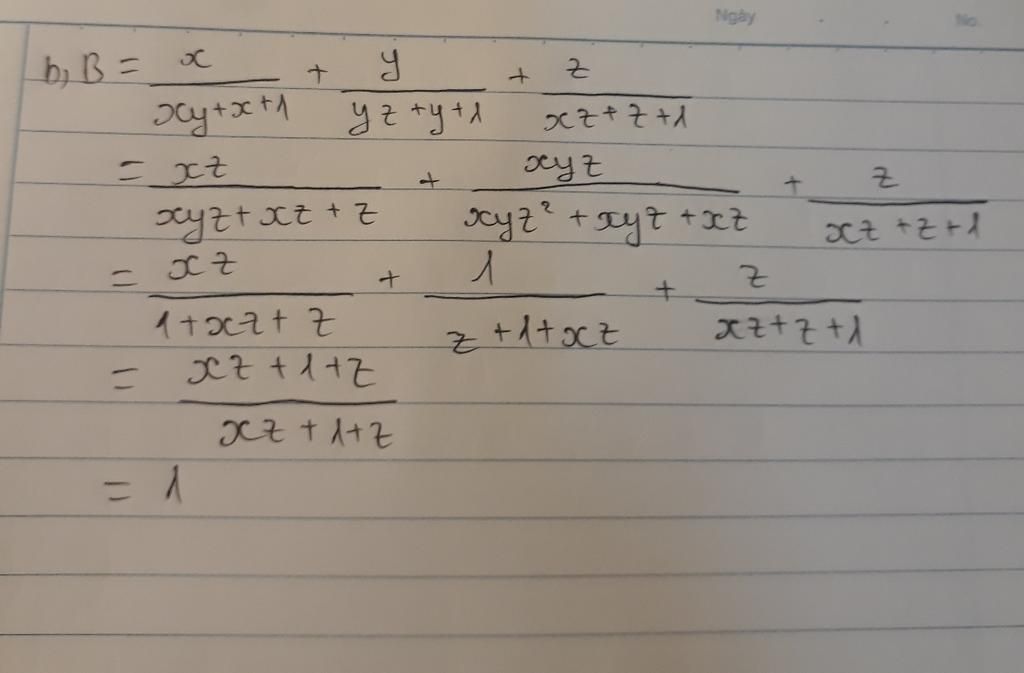 Ngày . . No.
b, B = x/(xy+x+1) + y/(yz+y+1) + z/(xz+z+1)
= xz/(xyz+xz+z) + xyz/(xyz²+xyz+xz) + z/(xz+z+1)
= xz/(1+xz+z) + 1/(z+1+xz) + z/(xz+z+1)
= (xz+1+z)/(xz+1+z)
= 1